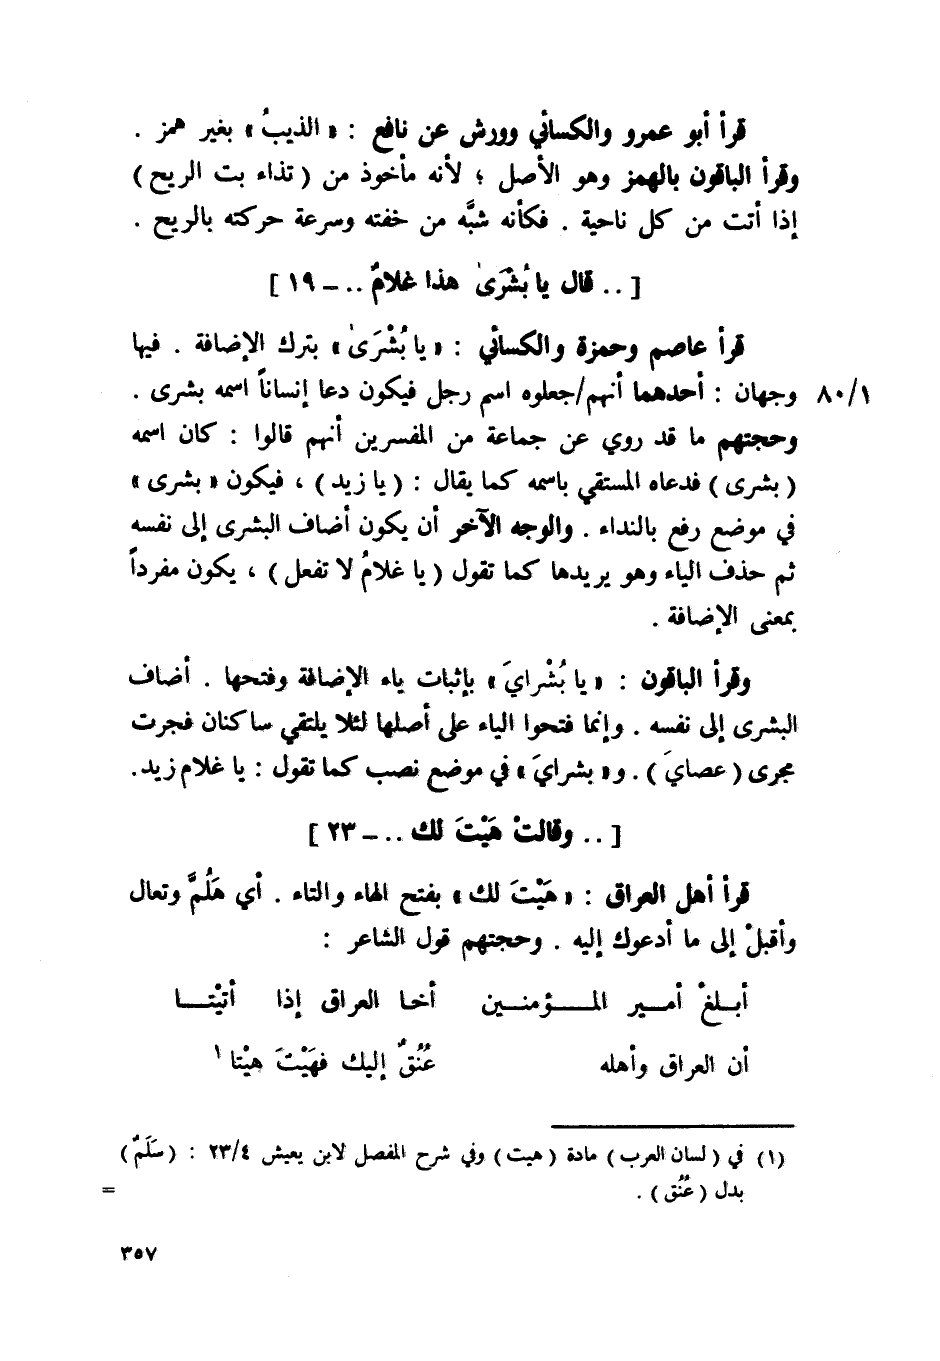 قرأ أبو عمرو والكسائي وورش عن نافع : « الذيبُ » بغير همز .
وقرأ الباقون بالهمز وهو الأصل ؛ لأنه مأخوذ من ( تذاء بت الريح )
إذا أتت من كل ناحية . فكأنه شبَّه من خفته وسرعة حركته بالريح .
[ .. قال يا بُشْرَىٰ هذا غلامٌ .. – ١٩ ]
قرأ عاصم وحمزة والكسائي : « يا بُشْرَىٰ » بترك الإضافة . فيها
وجهان : أحدهما أنهم/جعلوه اسم رجل فيكون دعا إنساناً اسمه بشرى . ٨٠/١
وحجتهم ما قد روي عن جماعة من المفسرين أنهم قالوا : كان اسمه
( بشرى ) فدعاه المستقي باسمه كما يقال : ( يا زيد ) ، فيكون « بشرى »
في موضع رفع بالنداء . والوجه الآخر أن يكون أضاف البشرى إلى نفسه
ثم حذف الياء وهو يريدها كما تقول ( يا غلامُ لا تفعل ) ، يكون مفرداً
بمعنى الإضافة .
وقرأ الباقون : « يا بُشْرايَ » بإثبات ياء الإضافة وفتحها . أضاف
البشرى إلى نفسه . وإنما فتحوا الياء على أصلها لئلا يلتقي ساكنان فجرت
مجرى ( عصايَ ) . و« بشرايَ » في موضع نصب كما تقول : يا غلام زيد.
[ .. وقالتْ هَيْتَ لك .. – ٢٣ ]
قرأ أهل العراق : « هَيْتَ لك » بفتح الهاء والتاء . أي هَلُمَّ وتعال
وأقبلْ إلى ما أدعوك إليه . وحجتهم قول الشاعر :
أبـلغْ أمـــير المــــؤمنــين أخـا العراق إذا أتيْتــا
أن العراق وأهله عُنُقٌ إليك فهَيْتَ هيْتا ١
(١) في ( لسان العرب ) مادة ( هيت ) وفي شرح المفصل لابن يعيش ٢٣/٤ : ( سَلَمٌ )
بدل ( عُنُق ) . =
٣٥٧